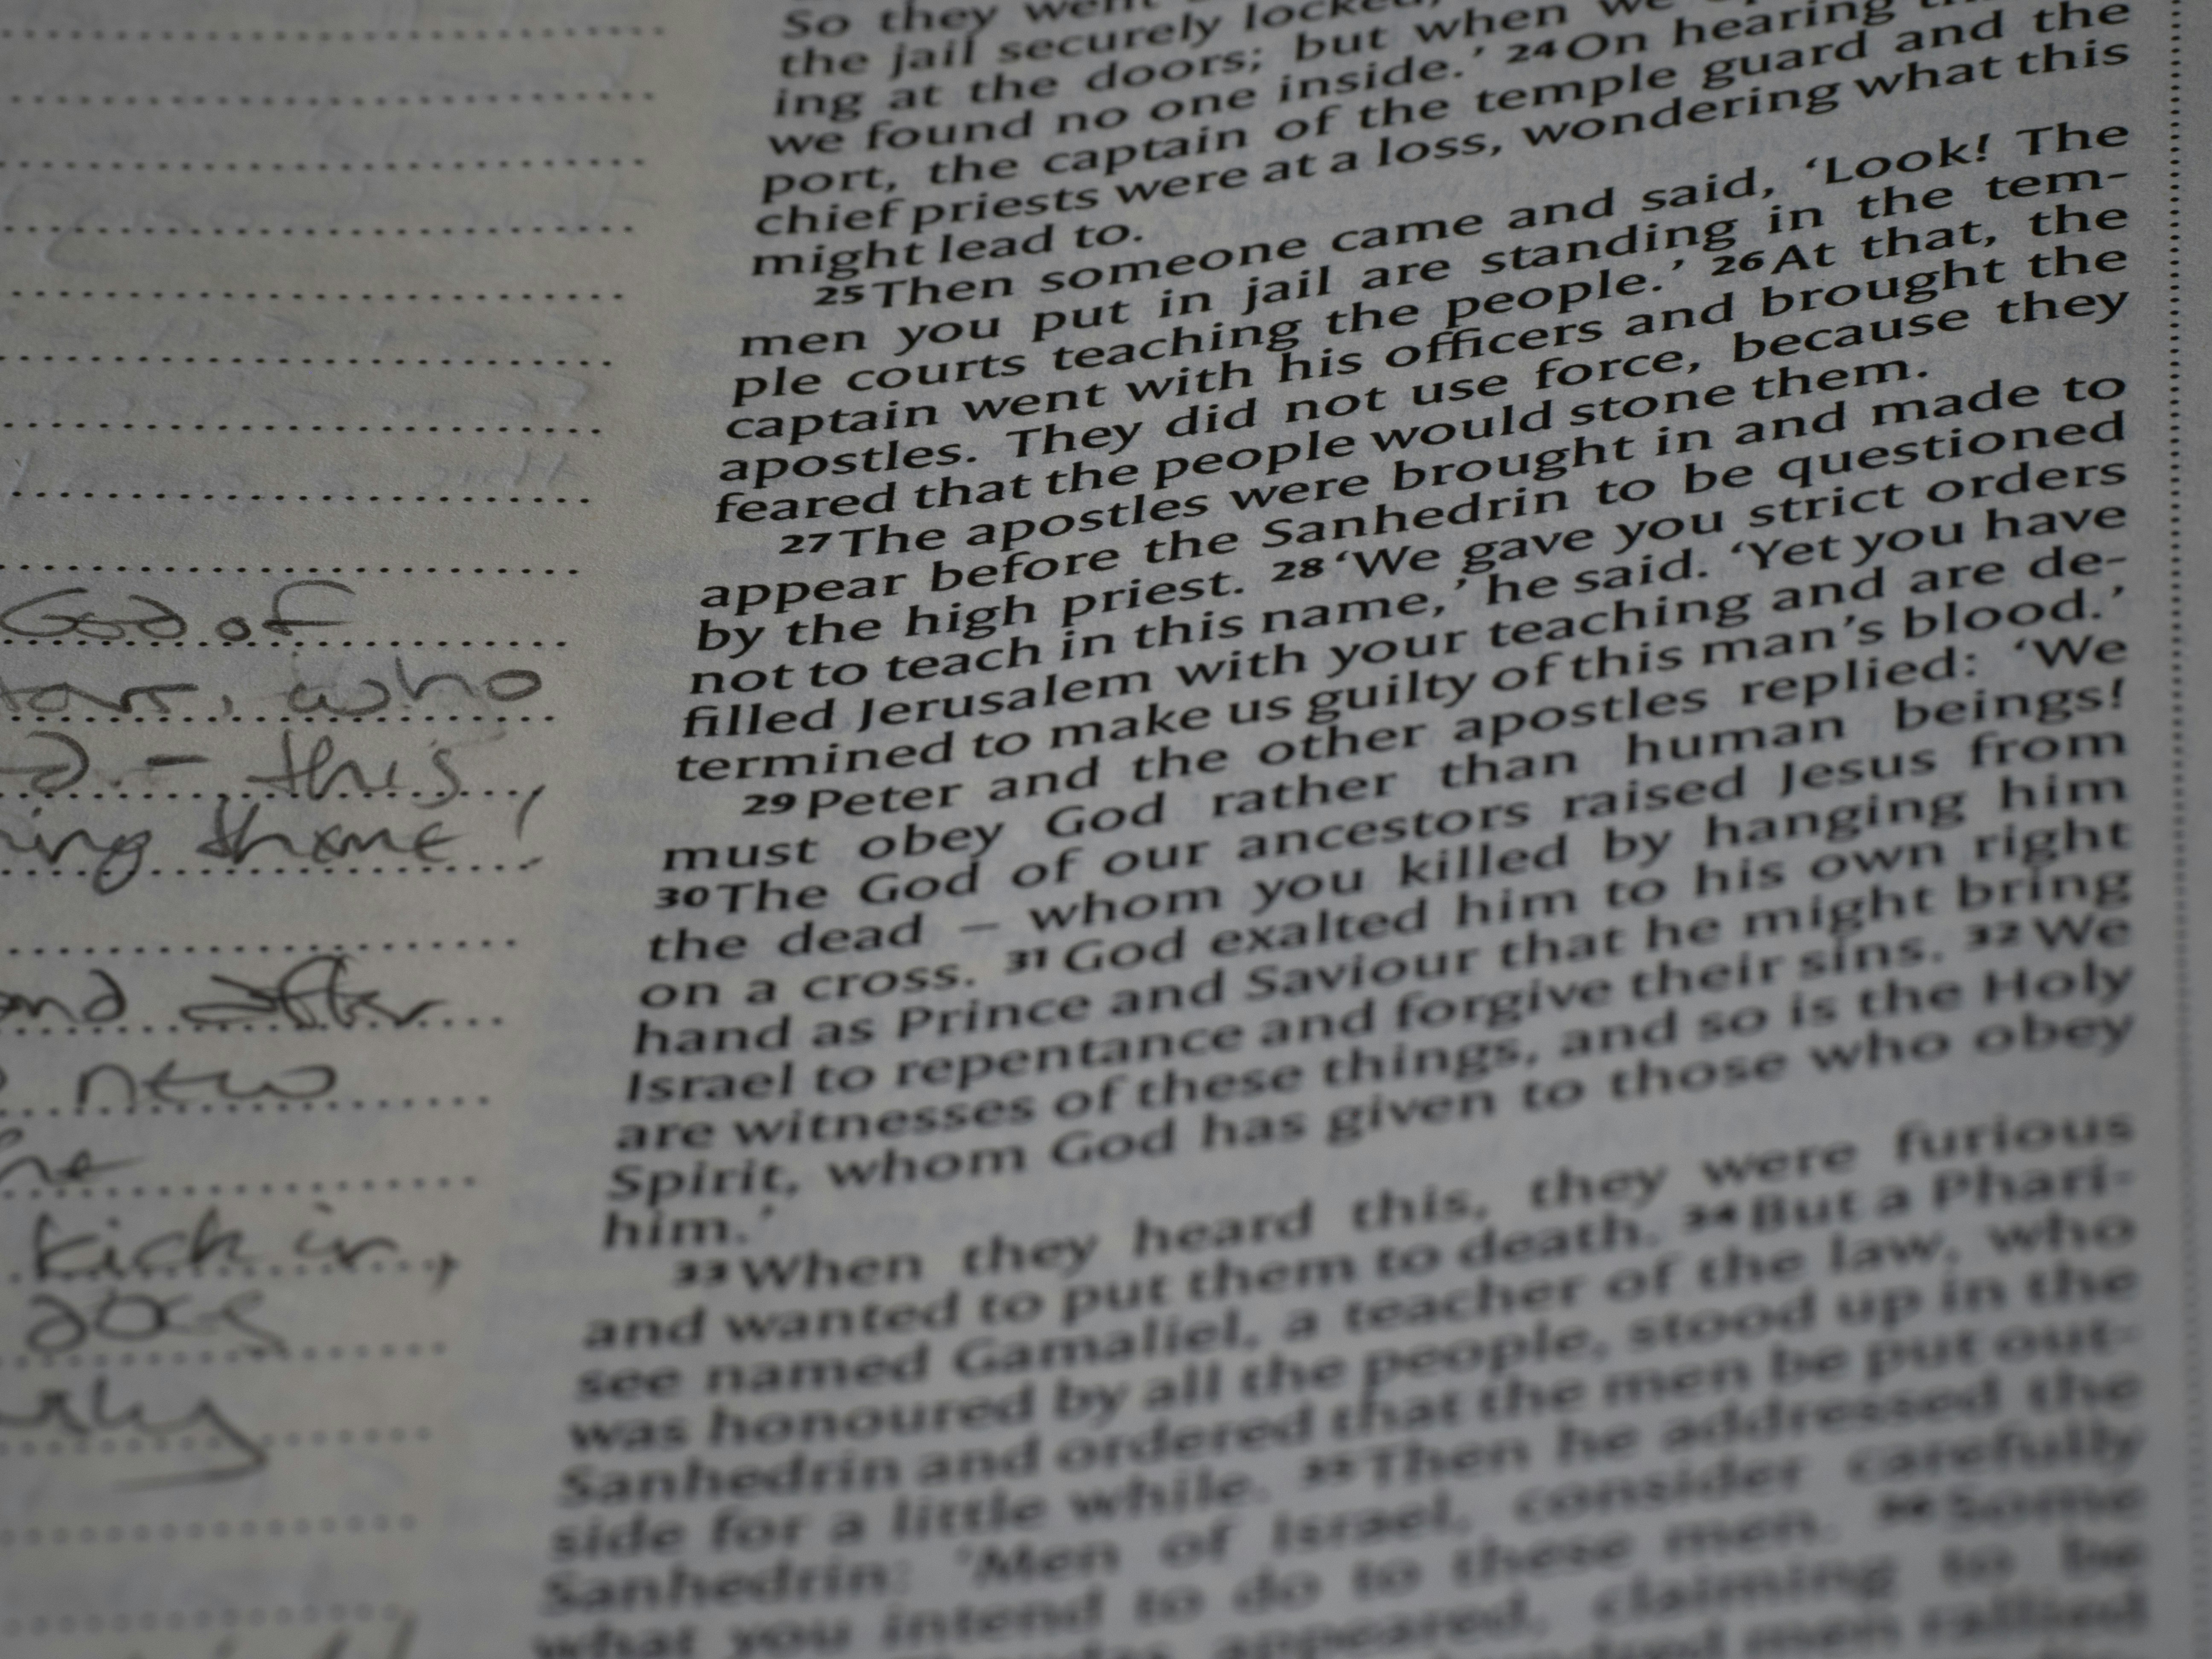 God of
who
this,
thome!
and after
new
kick in,
does
So they went
the jail securely locked,
ing at the doors; but when we
we found no one inside.’ 24On hearing
port, the captain of the temple guard and the
chief priests were at a loss, wondering what this
might lead to.
25Then someone came and said, ‘Look! The
men you put in jail are standing in the tem-
ple courts teaching the people.’ 26At that, the
captain went with his officers and brought the
apostles. They did not use force, because they
feared that the people would stone them.
27The apostles were brought in and made to
appear before the Sanhedrin to be questioned
by the high priest. 28‘We gave you strict orders
not to teach in this name,’ he said. ‘Yet you have
filled Jerusalem with your teaching and are de-
termined to make us guilty of this man’s blood.’
29Peter and the other apostles replied: ‘We
must obey God rather than human beings!
30The God of our ancestors raised Jesus from
the dead – whom you killed by hanging him
on a cross. 31God exalted him to his own right
hand as Prince and Saviour that he might bring
Israel to repentance and forgive their sins. 32We
are witnesses of these things, and so is the Holy
Spirit, whom God has given to those who obey
him.’
33When they heard this, they were furious
and wanted to put them to death. 34But a Phari-
see named Gamaliel, a teacher of the law, who
was honoured by all the people, stood up in the
Sanhedrin and ordered that the men be put out-
side for a little while. 35Then he addressed the
Sanhedrin: ‘Men of Israel, consider carefully
what you intend to do to these men. 36Some
appeared, claiming to be
men rallied